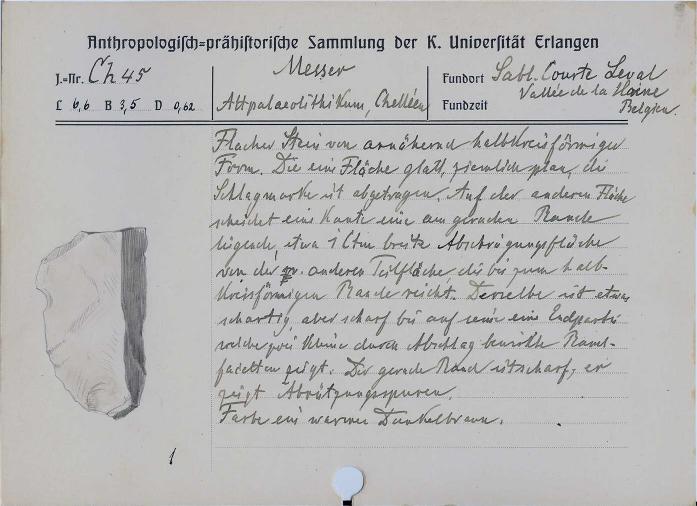 Anthropologisch=prähistorische Sammlung der K. Universität Erlangen
J.=Nr. Ch 45
Messer
Fundort Sabl. Courte Leval
Vallée de la Haine
Belgien.
L 6,6 B 3,5 D 0,62
Altpalaeolithikum, Chelléen
Fundzeit
Flacher Stein von annähernd halbkreisförmiger
Form. Die eine Fläche glatt, ziemlich plan, die
Schlagmarke ist abgetragen. Auf der anderen Fläche
scheidet eine Kante eine am geraden Rande
liegende, etwa 1 Ctm breite Abschrägungsfläche
von der anderen Teilfläche, die bis zum halb-
kreisförmigen Rande reicht. Derselbe ist etwas
schartig, aber scharf bis auf seine eine Endpartie
welche zwei kleine durch Abschlag bewirkte Rand-
facetten zeigt. Der gerade Rand ist scharf, er
zeigt Abnützungsspuren.
Farbe ein warmes Dunkelbraun.
1